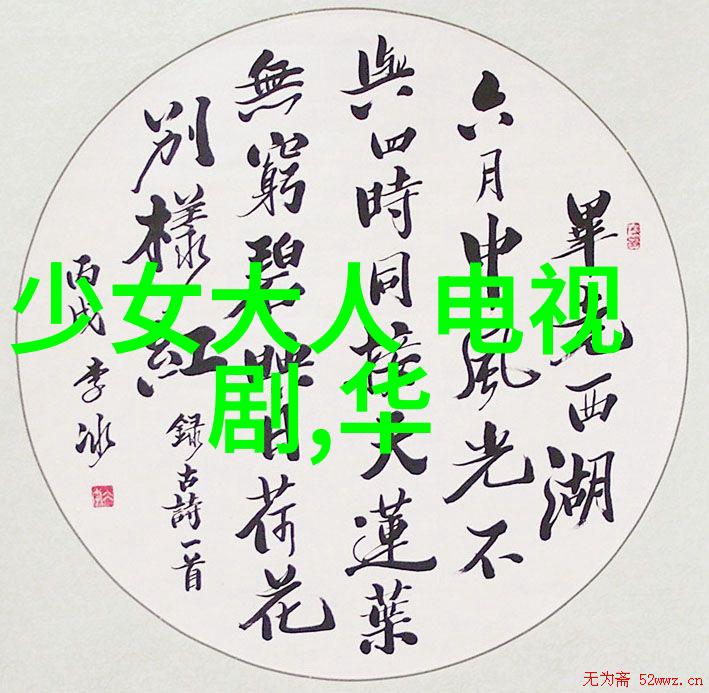 畢竟西湖
六月中風光不
與四時同接天蓮葉
無窮碧映日荷花
別樣紅
錄古詩一首
丙戌 李冰
少女大人 电视
剧,华
无为斋 52wwz.cn